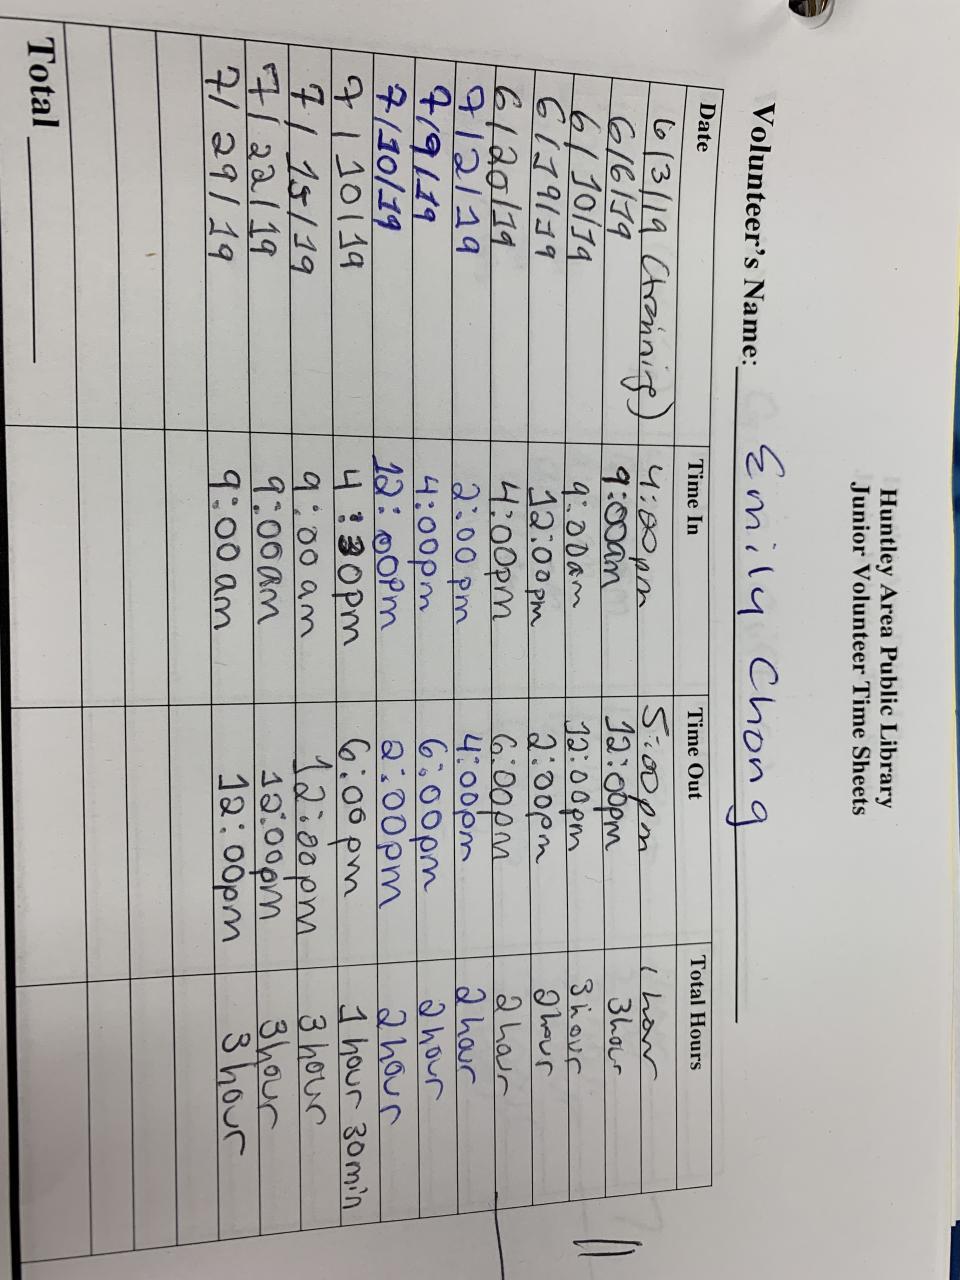 Huntley Area Public Library
Junior Volunteer Time Sheets
Volunteer's Name: Emily Chong
Date Time In Time Out Total Hours
6/3/19 (training) 4:00pm 5:00pm 1 hour
6/6/19 9:00am 12:00pm 3hour
6/10/19 9:00am 12:00pm 3hour
6/19/19 12:00pm 2:00pm 2hour
6/20/19 4:00pm 6:00pm 2hour
7/2/19 2:00pm 4:00pm 2hour
7/9/19 4:00pm 6:00pm 2hour
7/10/19 12:00pm 2:00pm 2hour
7/10/19 4:30pm 6:00pm 1 hour 30min
7/15/19 9:00am 12:00pm 3hour
7/22/19 9:00am 12:00pm 3hour
7/29/19 9:00am 12:00pm 3hour
Total
11